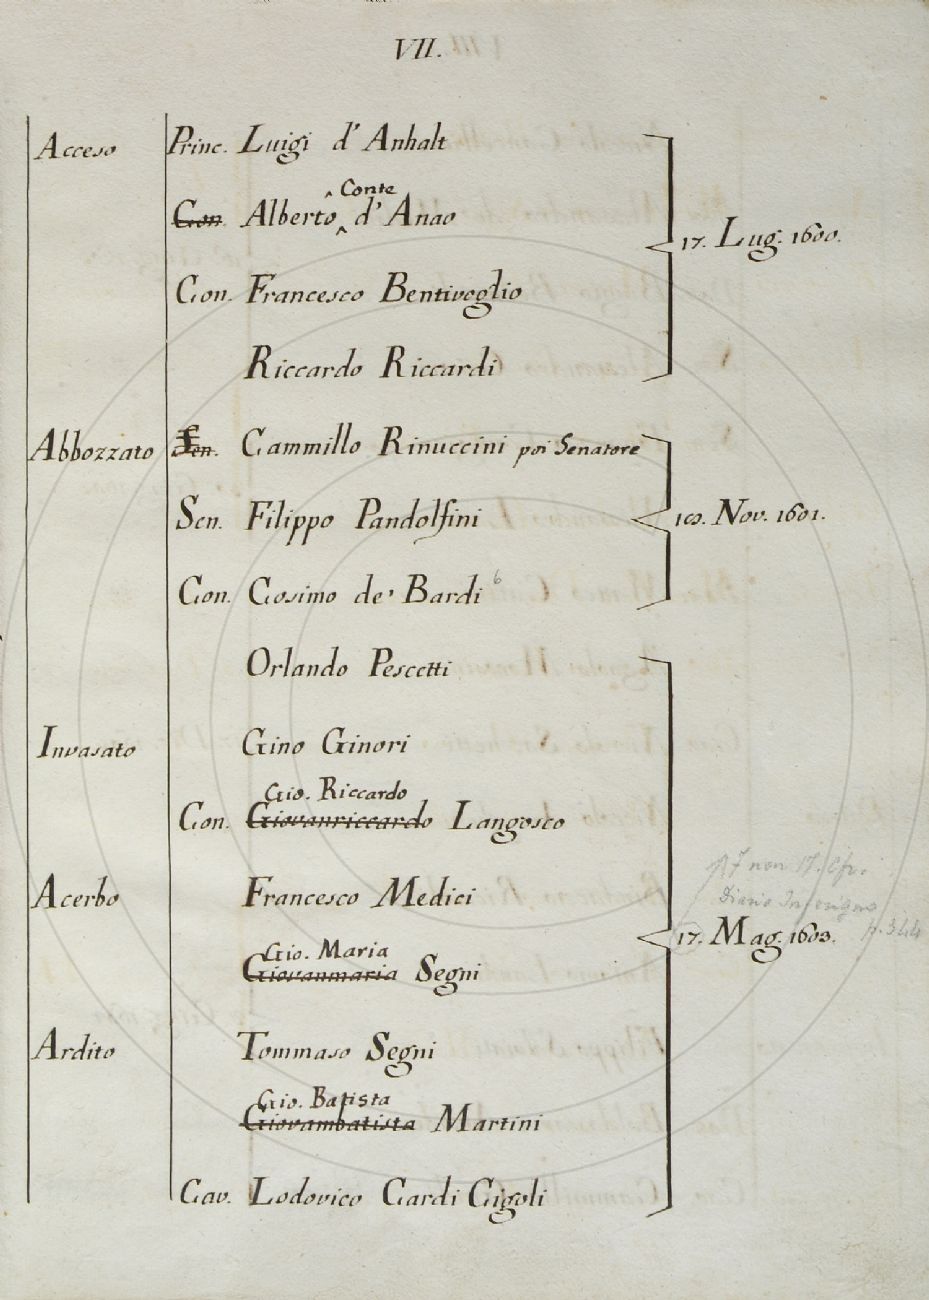 VII.
Acceso Princ. Luigi d' Anhalt
Conte
Con. Alberto d' Anao
17. Lug. 1600.
Con. Francesco Bentivoglio
Riccardo Riccardi
Abbozzato Sen. Cammillo Rinuccini poi Senatore
Sen. Filippo Pandolfini 10. Nov. 1601.
Con. Cosimo de' Bardi 6
Orlando Pescetti
Invasato Gino Ginori
Gio. Riccardo
Con. Giovanriccardo Langosco
17 non 17. Cfr.
Acerbo Francesco Medici
Diario p. 344
17. Mag. 1603.
Gio. Maria
Giovanmaria Segni
Ardito Tommaso Segni
Gio. Batista
Giovambatista Martini
Cav. Lodovico Cardi Cigoli